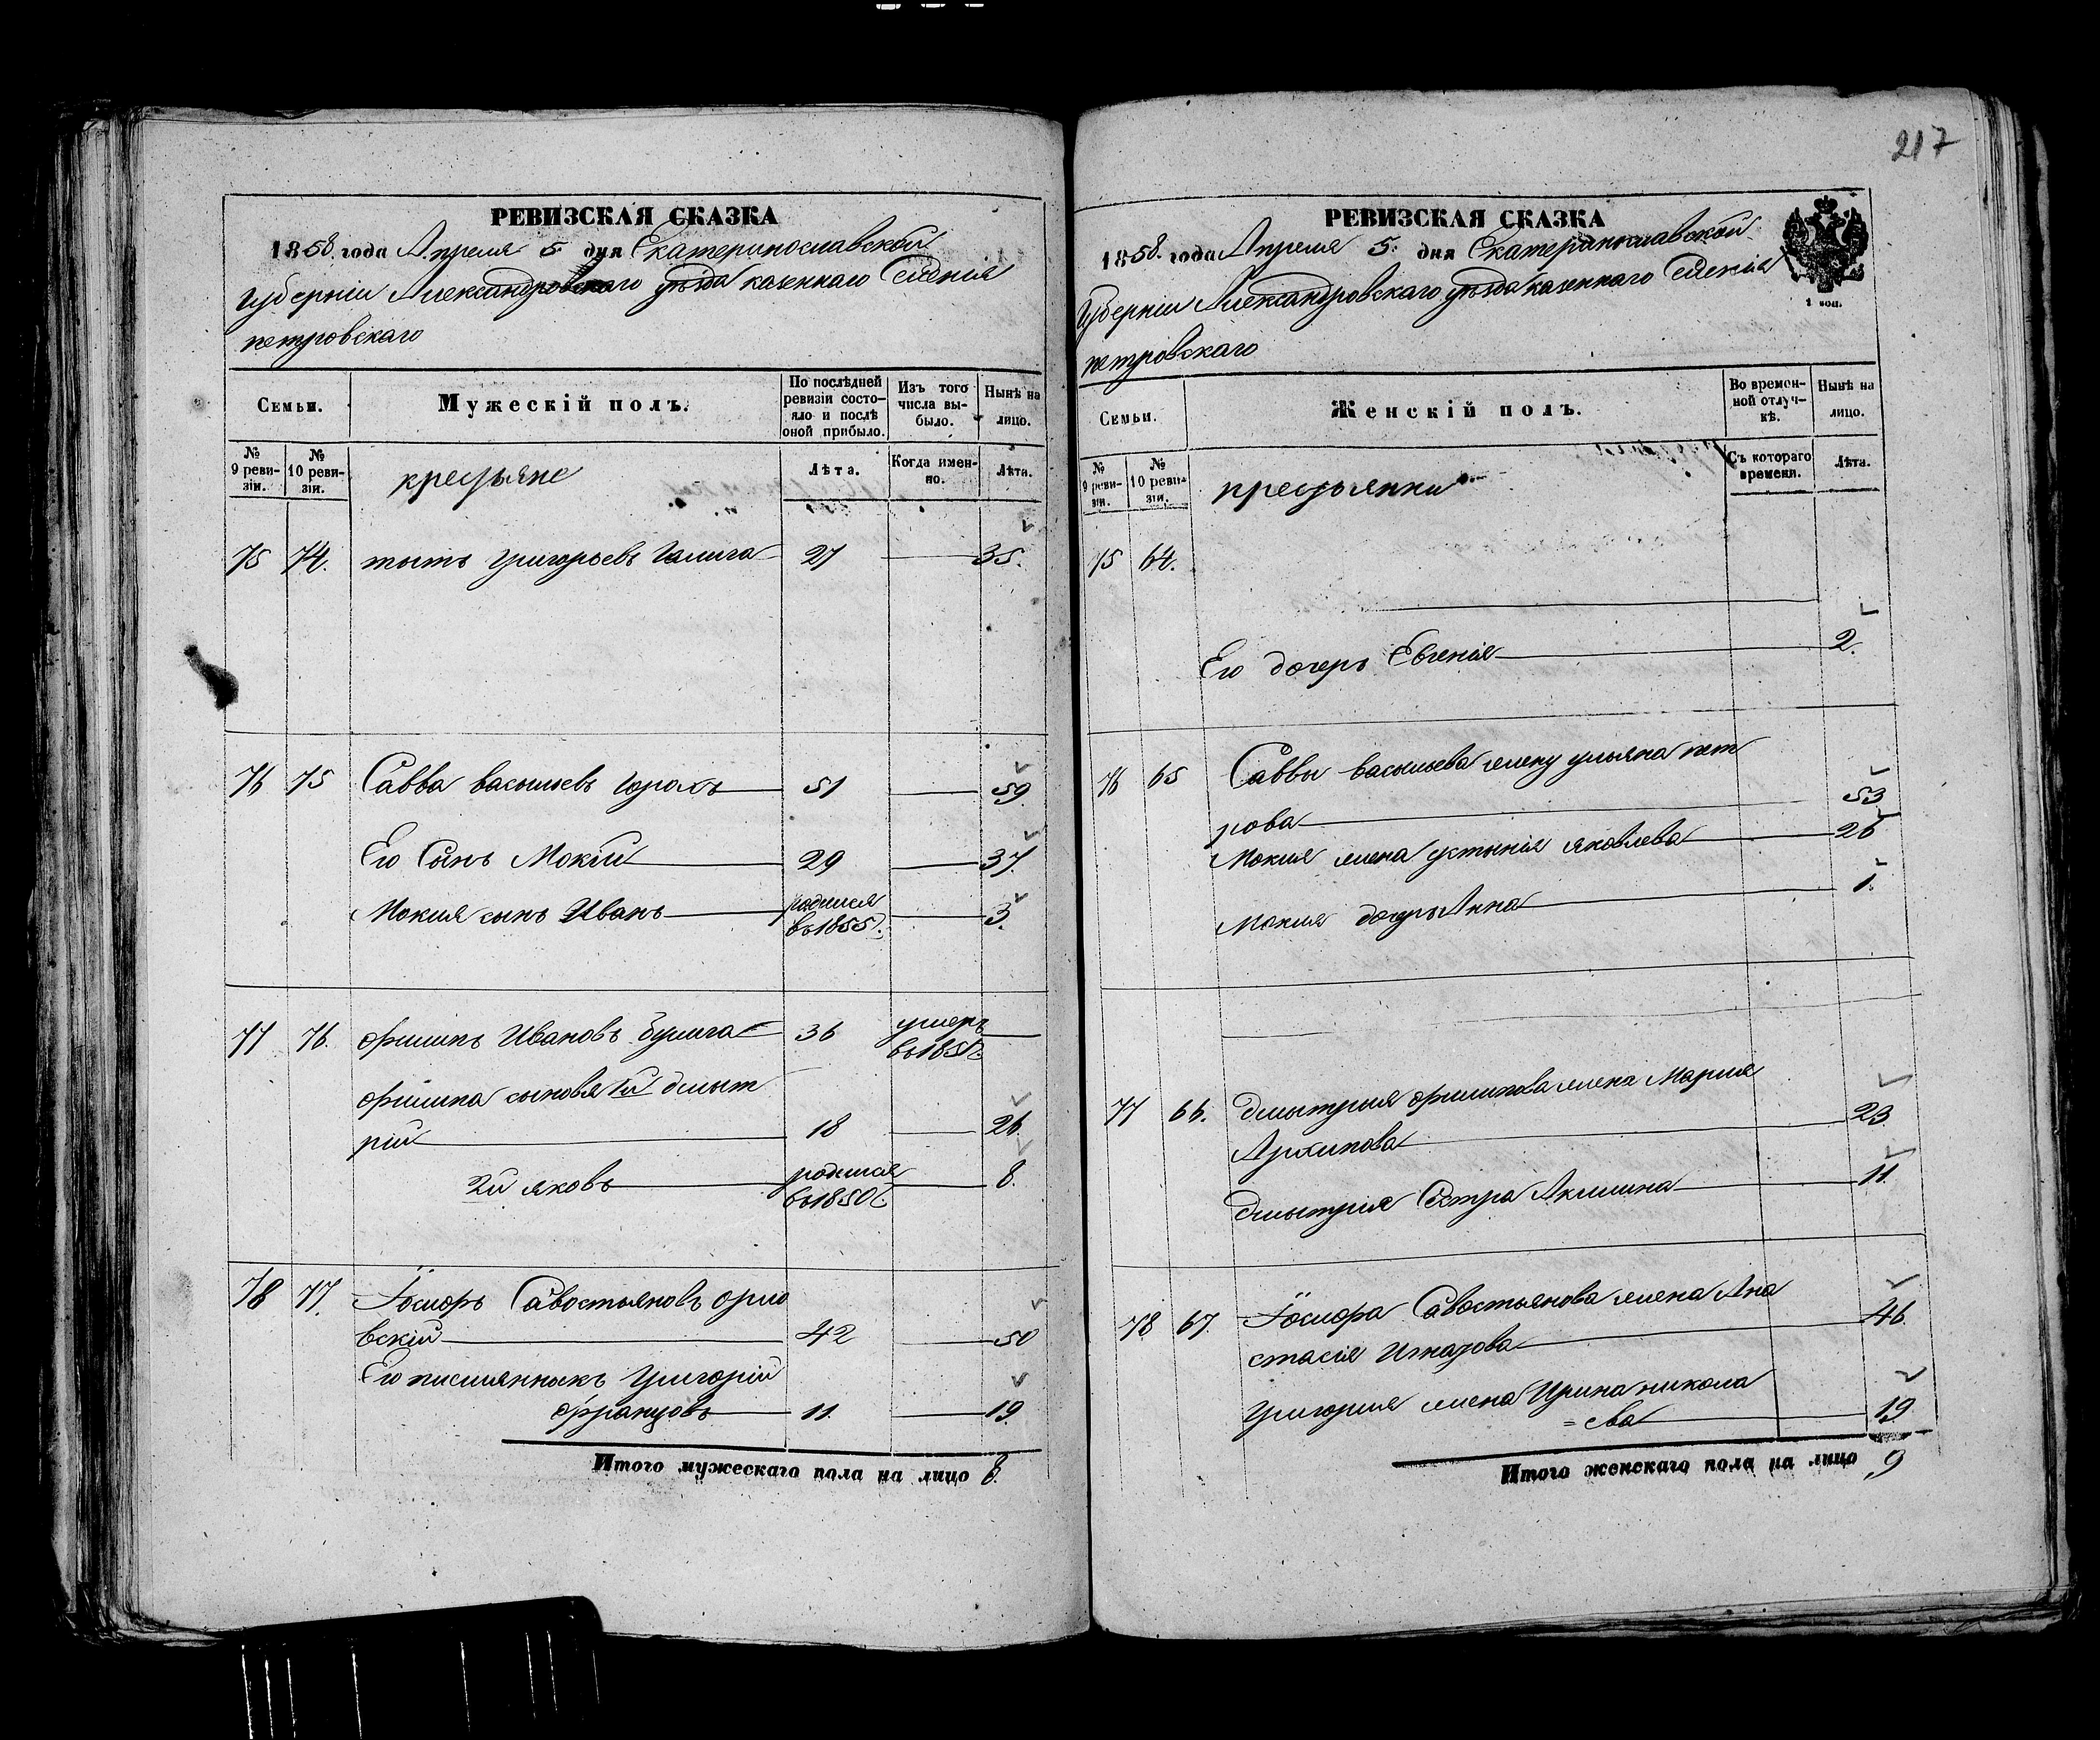 217
РЕВИЗСКАЯ СКАЗКА
1858 года Апреля 5 дня Екатеринославской
губерніи Александровскаго уѣзда казеннаго селенія
петровскаго
Семьи.
Мужескій полъ.
По послѣдней ревизіи состояло и послѣ оной прибыло.
Изъ того числа выбыло.
Нынѣ на лицо.
№ 9 ревизіи.
№ 10 ревизіи.
крестьяне
Лѣта.
Когда именно.
Лѣта.
75 74. Григорьевъ 27 35.
76 75 Савва васильевъ 51 59.
Его Сынъ Мокій 29 37.
Мокия сынъ Иванъ родился въ 1855 г. 3.
77 76. Филипъ Ивановъ 36 умеръ въ 185
Филипа сыновя 1й дмыт
рій 18 26.
2й яковъ родился въ 1850 г. 8.
78 77. Савостьяновъ орло
вскій 42 50
Его Григорій
Францовъ 11. 19
Итого мужескаго пола на лицо 8.
РЕВИЗСКАЯ СКАЗКА
1858. года Апреля 5. дня Екатеринославской
губерніи Александровскаго уѣзда казеннаго селенія
петровскаго
1 коп.
Семьи.
Женскій полъ.
Во временной отлучкѣ.
Нынѣ на лицо.
№ 9 ревизіи.
№ 10 ревизіи.
крестьянки
Съ котораго времени.
Лѣта.
75 64.
Его дочерь Евгенія 2.
76 65 Саввы васильева жену ульяна пет
рова 53
Мокия жена устинія яковлева 26
Мокия дочерь Анна 1.
77 66. дмытрия филипова жена Мария
Архипова 23
дмытрия Сестра Акилина 11.
78 67. Савостьянова жена Ана
стасія Игнатова 46.
Григория жена Ирина никола
=ева 19
Итого женскаго пола на лицо 9